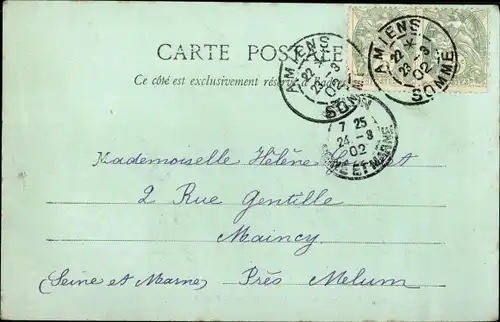 CARTE POSTALE
Ce côté est exclusivement réservé
AMIENS
22
23 - 8
02
SOMME
AMIENS
22
23 - 8
02
SOMME
7 25
24 - 8
02
SEINE ET MARNE
Mademoiselle Hélène
2 Rue Gentille
Maincy
(Seine et Marne) Près Melum